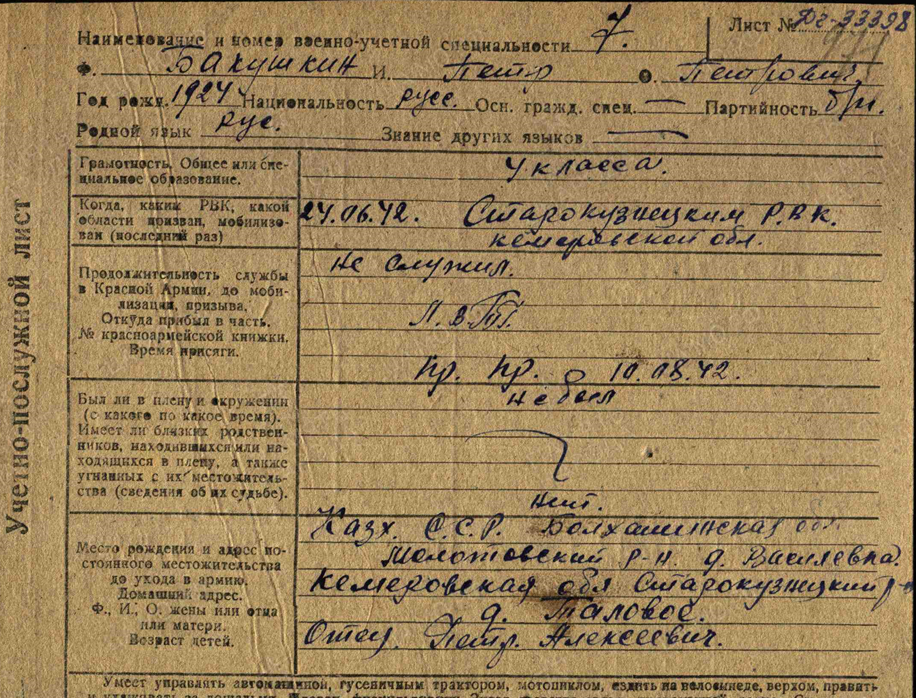 Лист № Рг-33398
Наименование и номер военно-учетной специальности 7.
Ф. Бакушкин И. Петр О. Петрович.
Год рожд. 1924 Национальность русс. Осн. гражд. спец. — Партийность б/п.
Родной язык рус. Знание других языков —
Учетно-послужной лист
Грамотность. Общее или спе-
циальное образование.
4 класса.
Когда, каким РВК, какой
области призван, мобилизо-
ван (последний раз)
24.06.42. Старокузнецким Р.В.К.
Кемеровской обл.
Продолжительность службы
в Красной Армии, до моби-
лизации, призыва.
Откуда прибыл в часть.
№ красноармейской книжки.
Время присяги.
Не служил.
Пр. Пр. 10.08.42.
Был ли в плену и окружении
(с какого по какое время).
Имеет ли близких родствен-
ников, находившихся или на-
ходящихся в плену, а также
угнанных с их местожитель-
ства (сведения об их судьбе).
Не был
Нет.
Место рождения и адрес по-
стоянного местожительства
до ухода в армию.
Домашний адрес.
Ф., И., О. жены или отца
или матери.
Возраст детей.
Казх. С.С.Р. обл.
Молотовский р-н. д.
Кемеровская обл Старокузнецкий р-н
д. Таловое.
Отец. Петр. Алексеевич.
Умеет управлять автомашиной, гусеничным трактором, мотоциклом, ездить на велосипеде, верхом, править